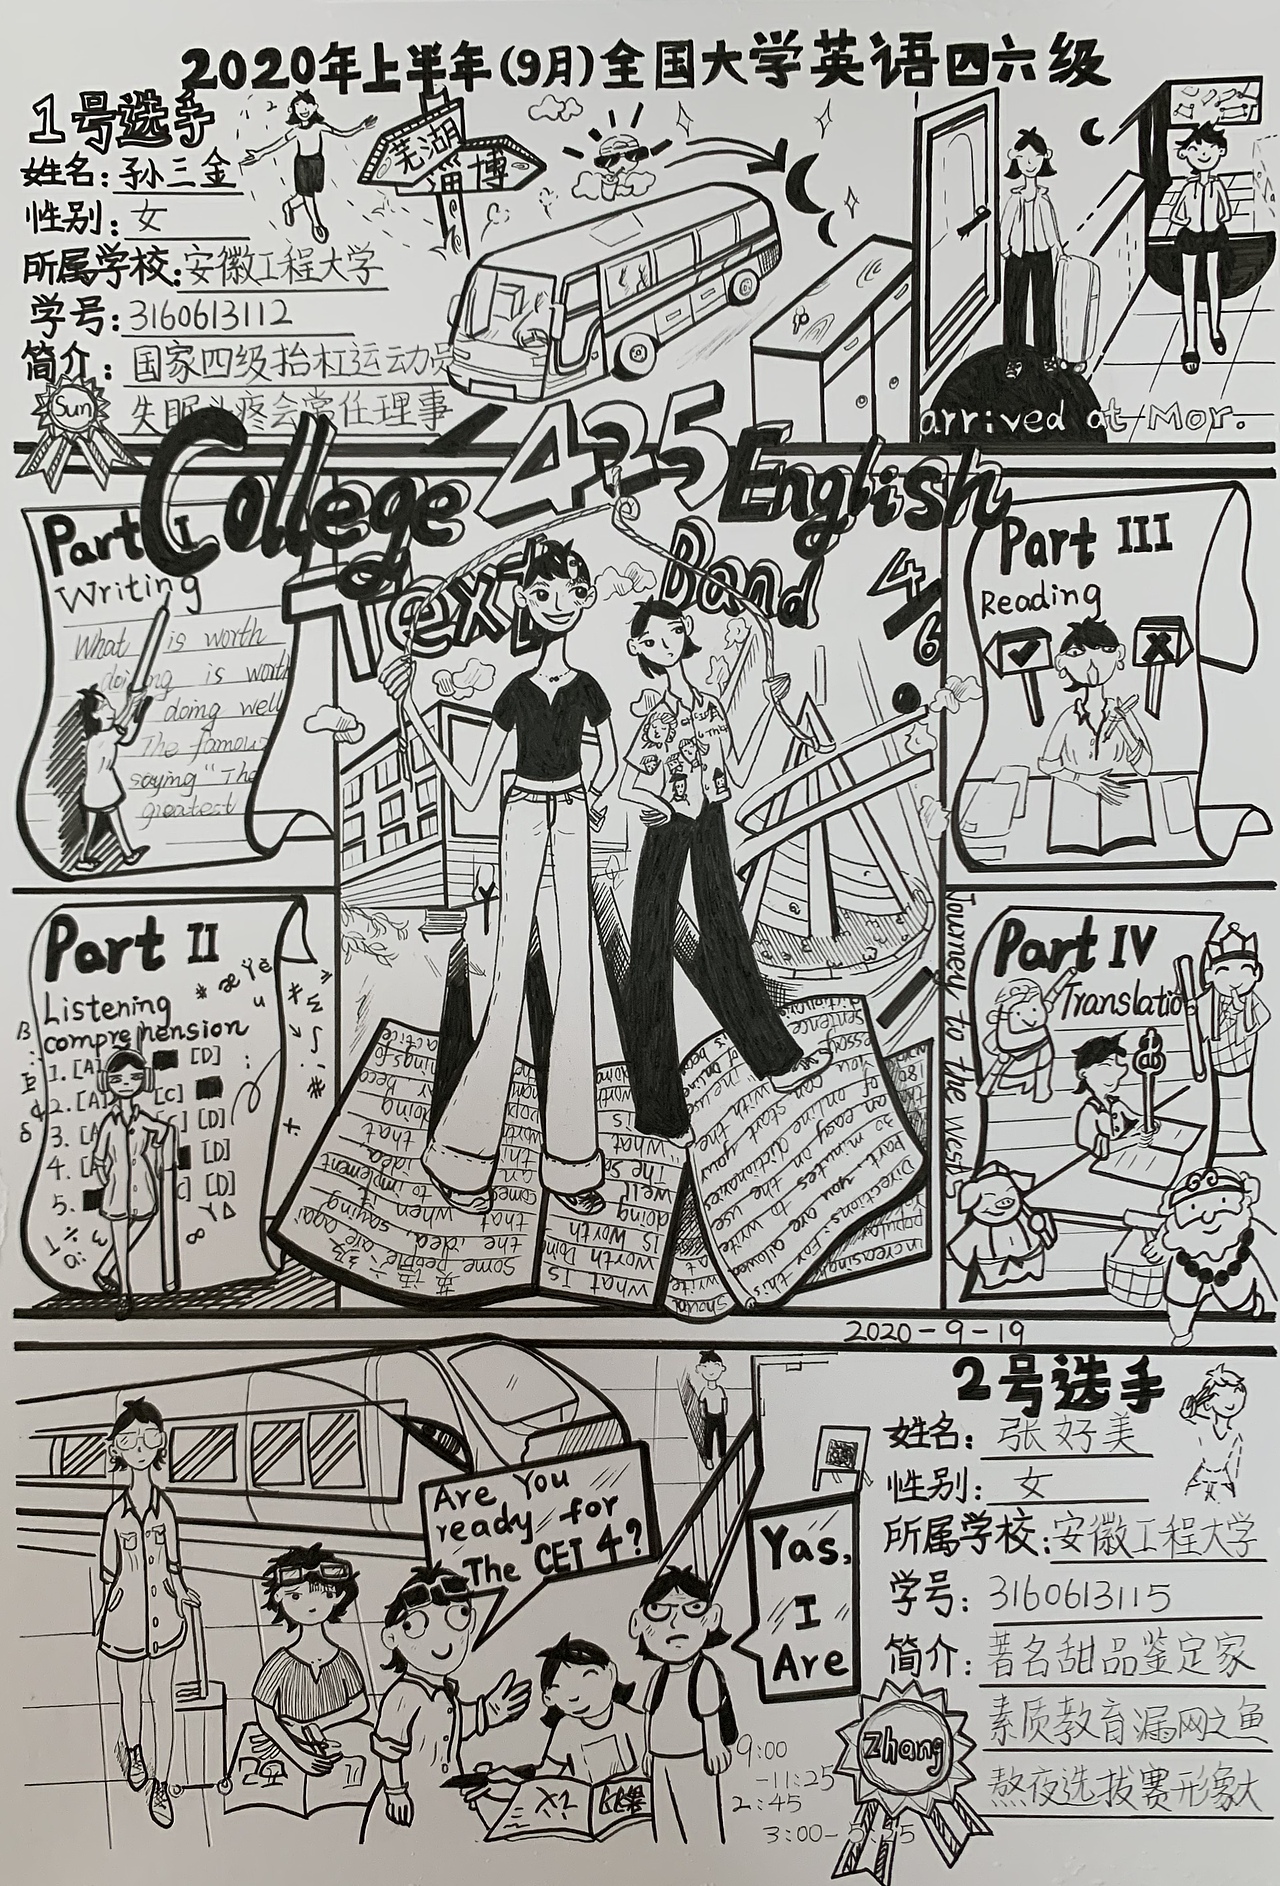 2020年上半年(9月)全国大学英语四六级
1号选手
姓名:孙三金
性别:女
所属学校:安徽工程大学
学号:3160613112
简介:国家四级抬杠运动员
失眠头疼会常任理事
Sun
芜湖
淄博
arrived at Mor.
College 425 English
Text Band 4/6
Part I
Writing
What is worth
doing is worth
doing well
The famous
saying "The
greatest
Part III
Reading
Part II
Listening
comprehension
1. [A] [D]
2. [A] [C]
3. [A [D]
4. [A [D]
5. [D]
Part IV
Translatio
Journey to the West
英语六级
Some people are
the idea.
what Is
Worth Doing
IS Worth
doing
well
Directions: For this
part, you are allowed
30 minutes to write
2020-9-19
Are You
ready for
The CET 4?
Yas,
I
Are
2号选手
姓名:张好美
性别:女
所属学校:安徽工程大学
学号:3160613115
简介:著名甜品鉴定家
素质教育漏网之鱼
熬夜选拔赛形象大
Zhang
9:00
-11:25
2:45
3:00-5:25